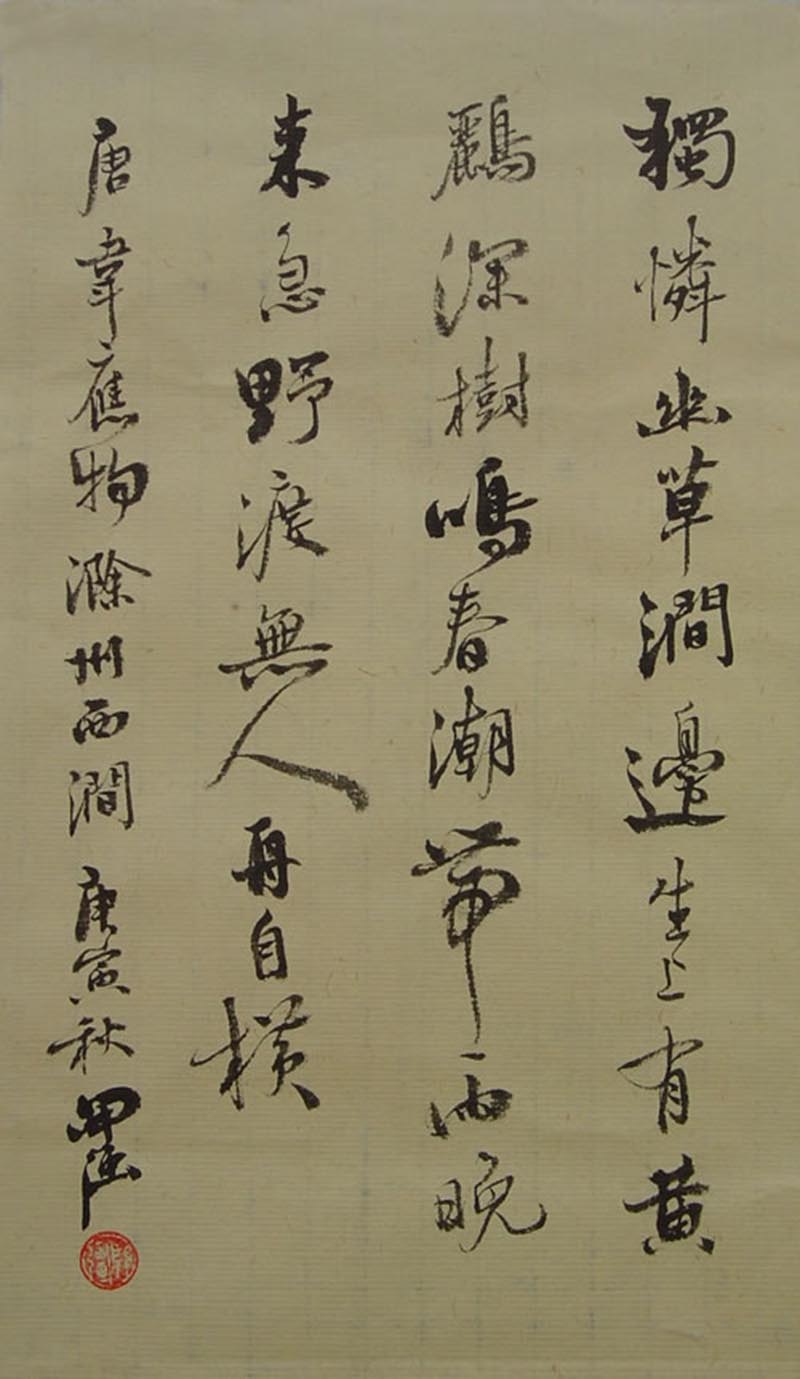 獨憐幽草澗邊生上有黄
鸝深樹鳴春潮帶雨晚
來急野渡無人舟自橫
唐韋應物滁州西澗庚寅秋